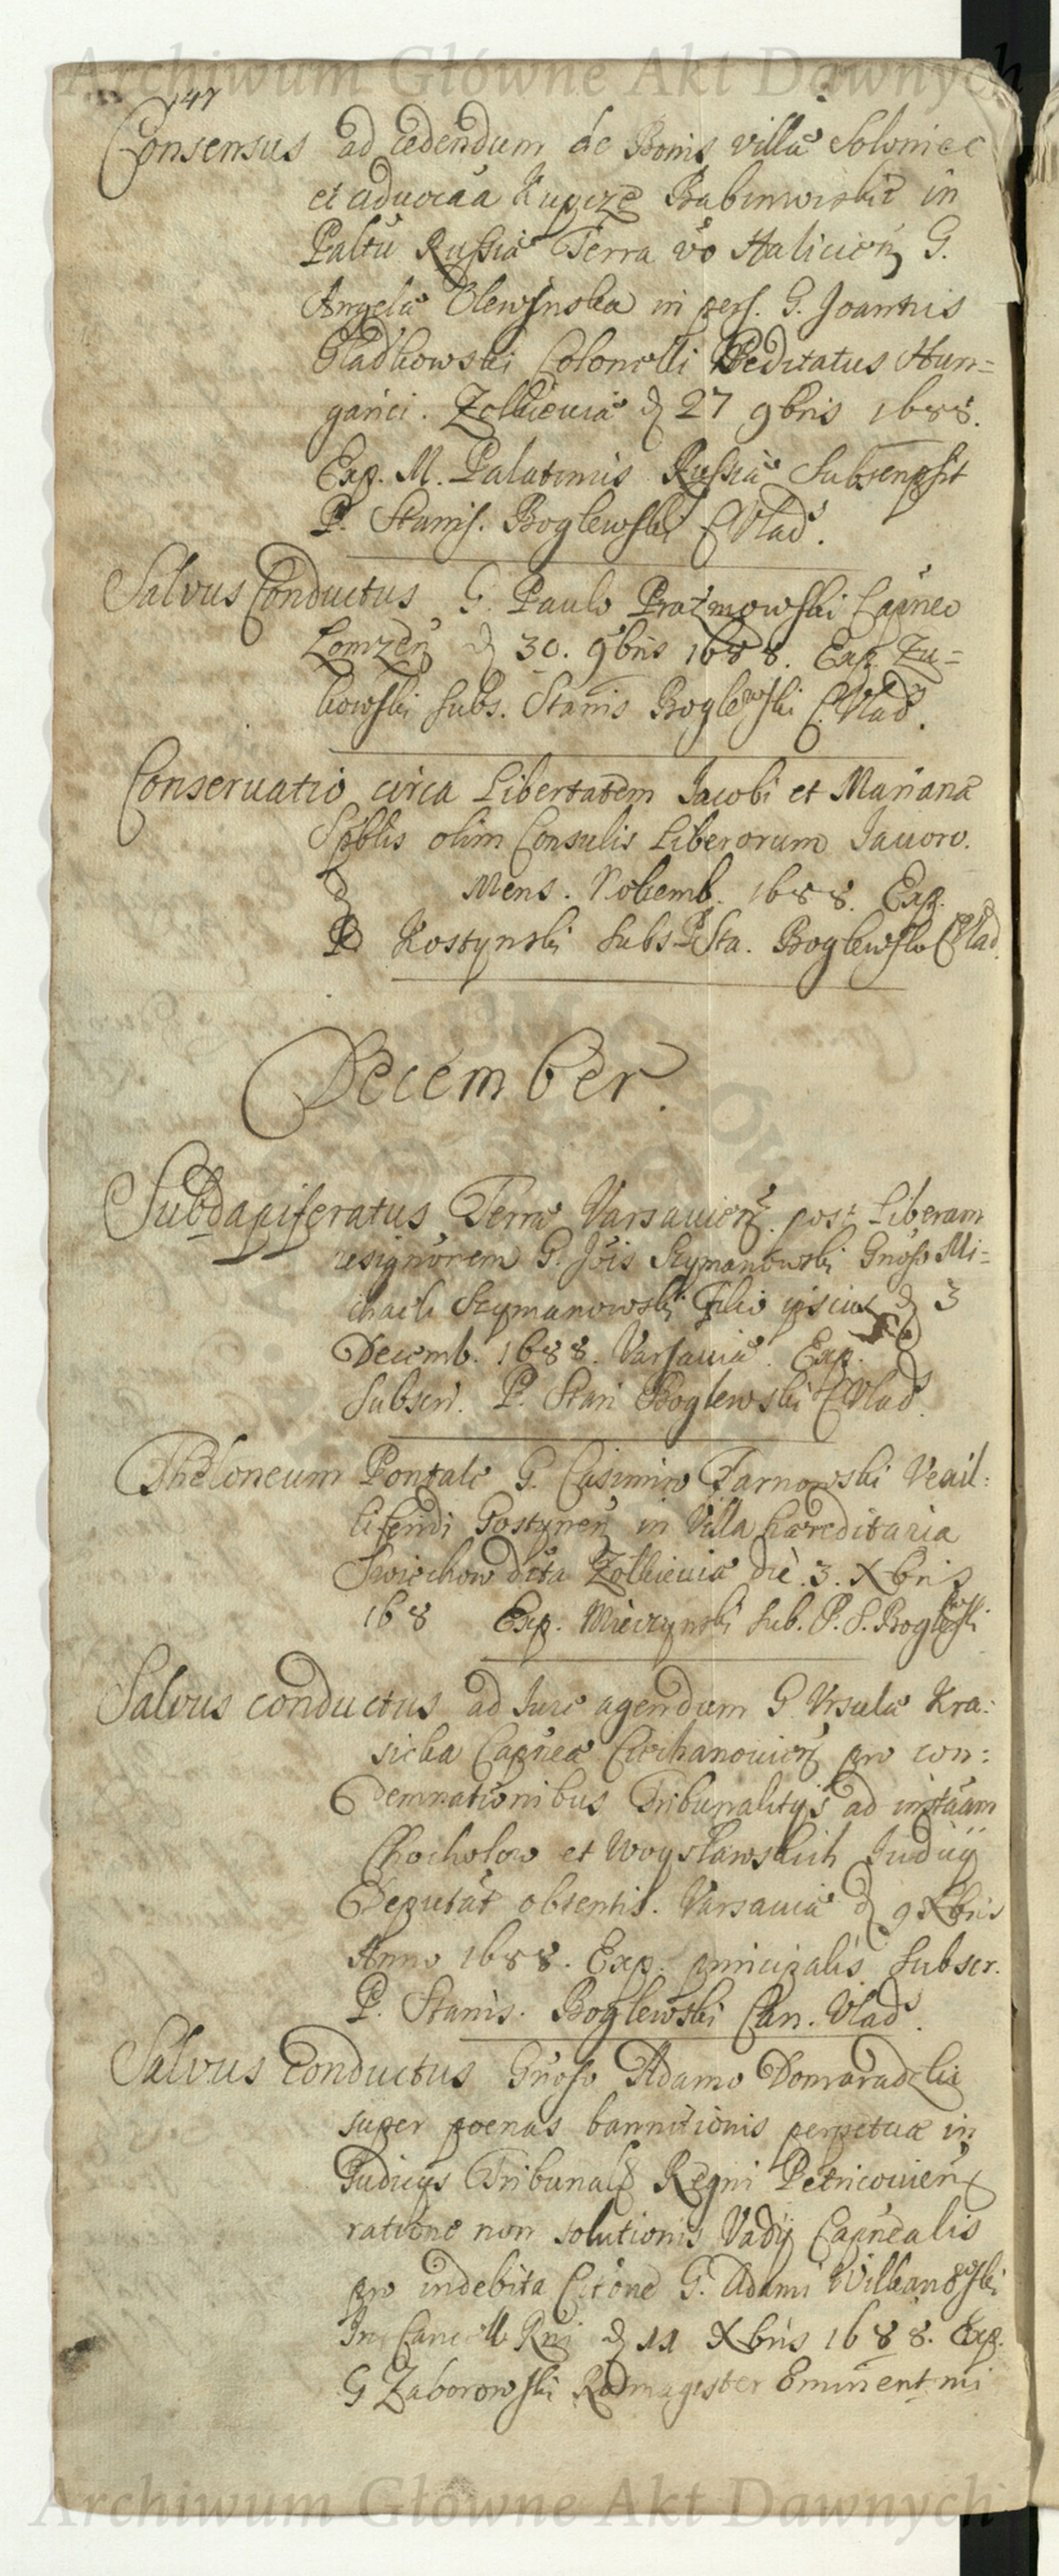 Archiwum Główne Akt Dawnych
147
Consensus ad cedendum de Bonis villa Soloniec
et aduocāa Kupcze Babinwiskie in
Paltu Russiæ Terra vo Halicień G.
Angela Olewinska in pers. G. Joannis
Gladkowski Colonelli Peditatus Hun=
garici. Zolkieuiæ d 27 9bris 1688.
Exp. M. Palatinus Russiæ Subscripsit
P. Stanis. Boglewski C Vlad.
Salvus Conductus G. Paulo Prażmowski Capneo
Lomzeń d 30. 9bris 1688. Exp. Zu=
kowski subs. Stanis Boglewski C. Vlad.
Conseruatio circa Libertatem Jacobi et Mariana
Spblis olim Consulis Liberorum Jauoro.
d Mens. Nobemb. 1688. Exp.
P Kostynski subs P Sta. Boglewski C Vlad.
December.
Subdapiferatus Terræ Varsauień. post Liberam
resignōrem G. Jōis Szymanowski Gnōso Mi=
chaeli Szymanowski Filio ipsius d 3
Decemb. 1688. Varsauiæ. Exp.
Subscri. P. Stan Boglewski C Vlad.
Theloneum Pontale G. Casimiro Tarnowski Vexil:
liferidi Gostyneń in Villa hæreditaria
Swiechow dita Zolkieuiæ die. 3. Xbris
168 Exp. Mieczynski sub. P. S. Boglewski
Salvus conductus ad Jure agendum G Vrsulæ Kra:
sicka Capnea Ciechanouień pro con:
demnationibus Tribunalitys ad instāam
Chocholow et Woyslawskich Judicij
Deputāt obtentis. Varsauiæ d 9 Xbris
Anno 1688. Exp. principalis subscr.
P. Stanis. Boglewski Can. Vlad.
Salvus Conductus Gnōso Adamo Domaradzki
super poenas bannitionis perpetuæ in
Judicijs Tribunal Regni Petricouień
ratione non solutionis Vadij Capnealis
pro indebita Citōne G. Adami Wilkanowski
In Cancell Rni d 11 Xbris 1688. Exp.
G Zaborowski Rodmagister Eminent mi
Archiwum Główne Akt Dawnych